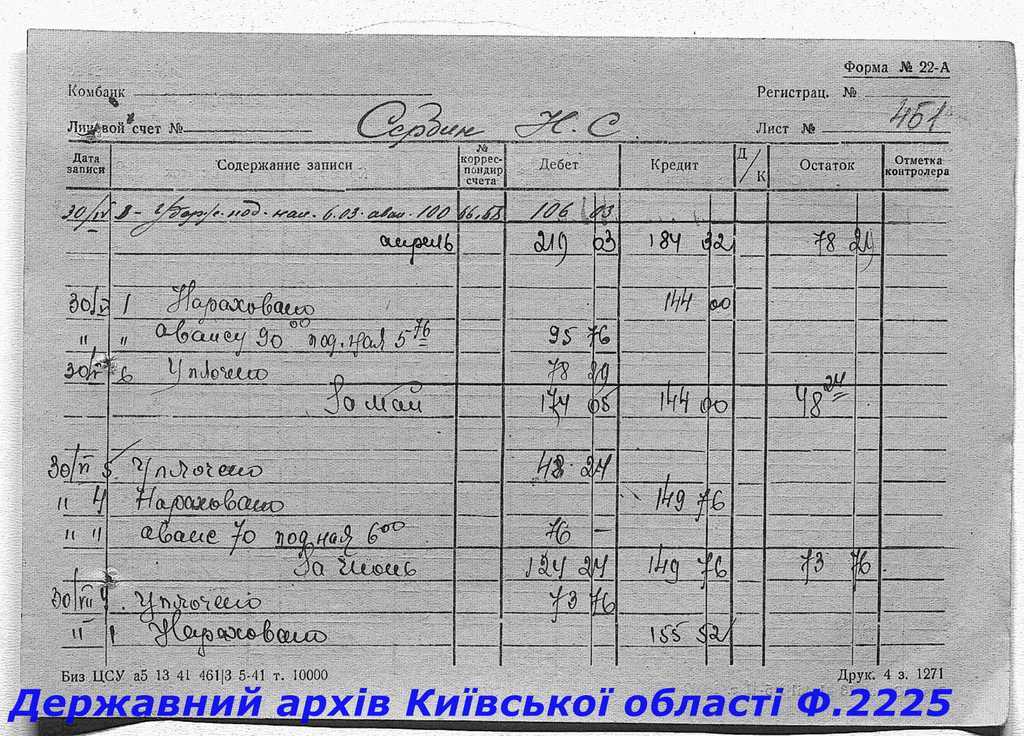 Форма № 22-А
Комбанк
Регистрац. №
Лицевой счет № Сердин Н. С. Лист № 451
Дата записи Содержание записи № коррес-пондир счета Дебет Кредит Д/К Остаток Отметка контролера
30/IV под. нал. 6.03 аван. 100 106 03
апрель 219 03 184 32 78 29
30/V 1 Нараховано 144 00
" " авансу 90 00 под. ная 5 76 95 76
30/V 6 Уплочено 78 29
За май 174 05 144 00 48 24
30/VI 5 Уплочено 48 24
" 4 Нараховано 149 76
" " аванс 70 под ная 6 00 76 —
За Июнь 124 24 149 76 73 76
30/VII 4 Уплочено 73 76
" 1 Нараховано 155 52
Биз ЦСУ а5 13 41 461|3 5-41 т. 10000
Друк. 4 з. 1271
Державний архів Київської області Ф.2225